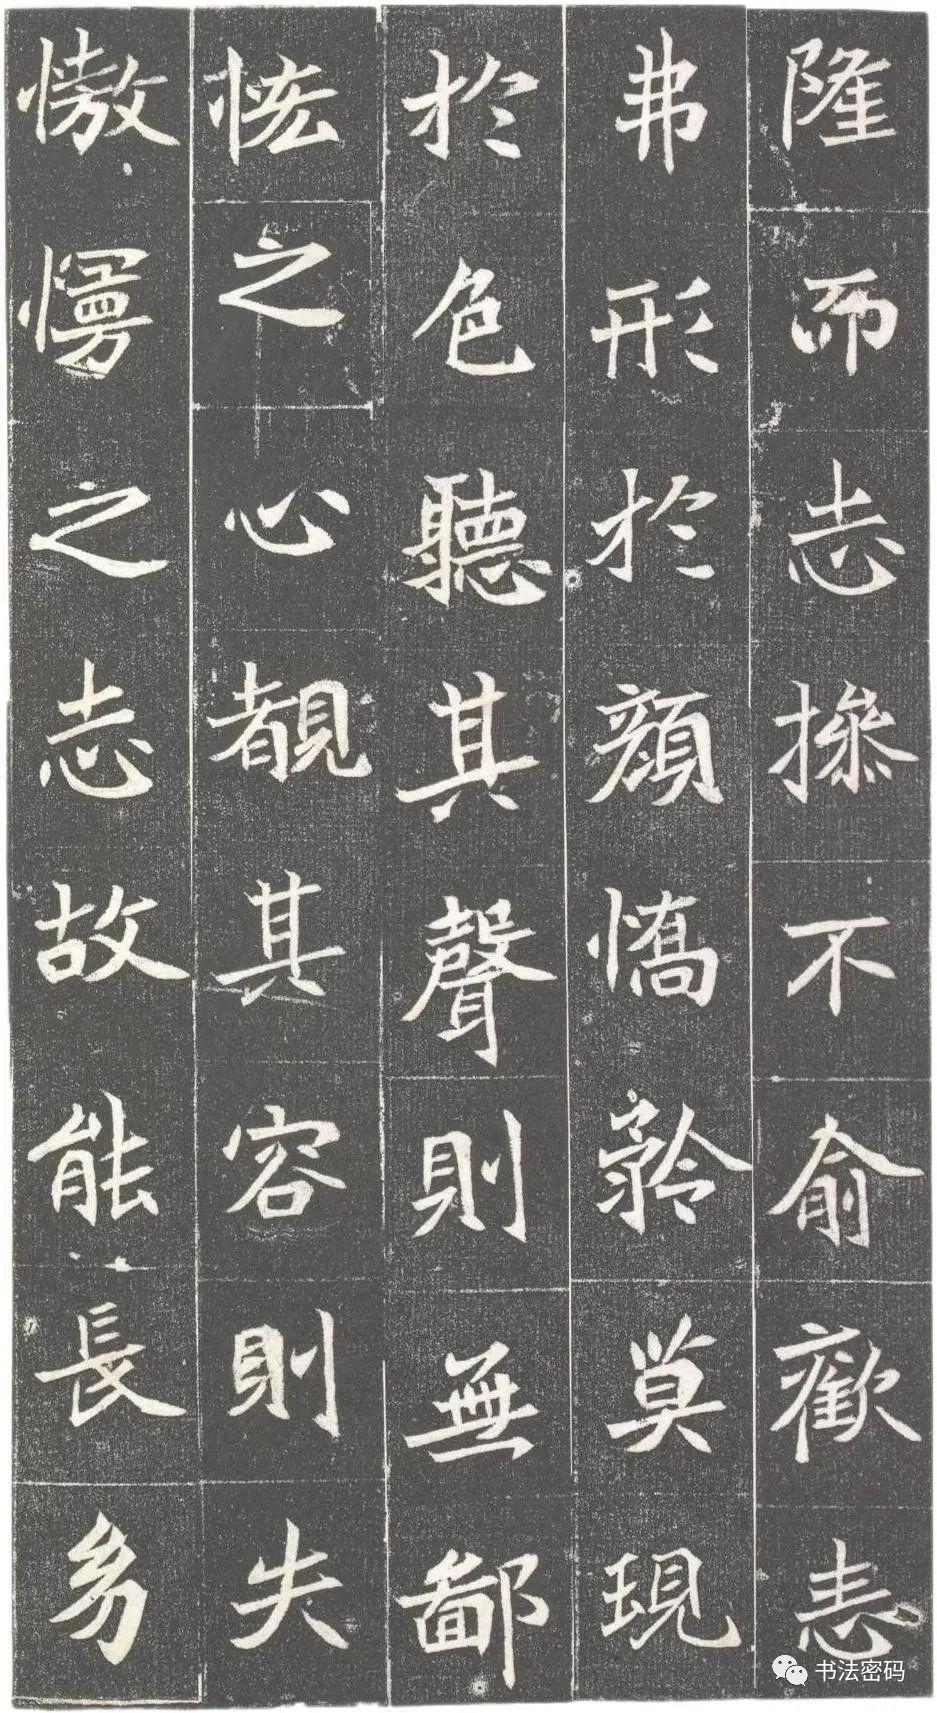 隆而志操不俞歡恚
弗形於顏憍矜莫現
於色聽其聲則無鄙
恡之心覩其容則失
慠慢之志故能長幼
书法密码